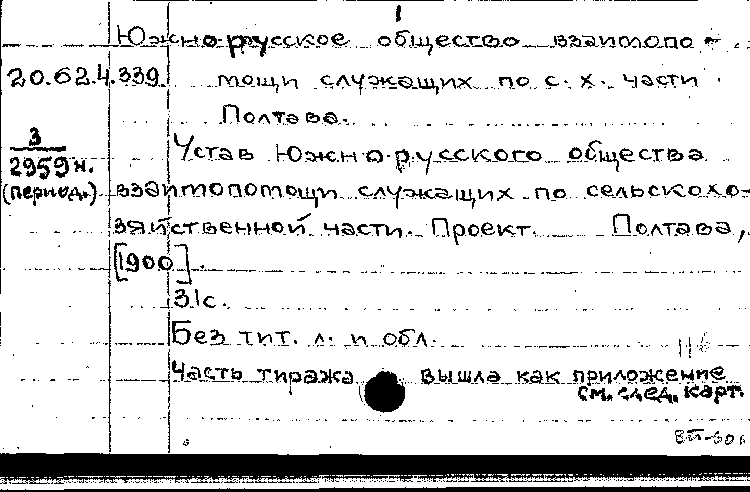 1
Южно-русское общество взаимопо-
20.62.4.339. мощи служащих по с. х. части
Полтава.
3
2959 н.
(период.)
Устав Южно-русского общества
взаимопомощи служащих по сельскохо-
зяйственной части. Проект. Полтава,
[1900].
31с.
Без тит. л. и обл.
116
Часть тиража вышла как приложение
см. след. карт.